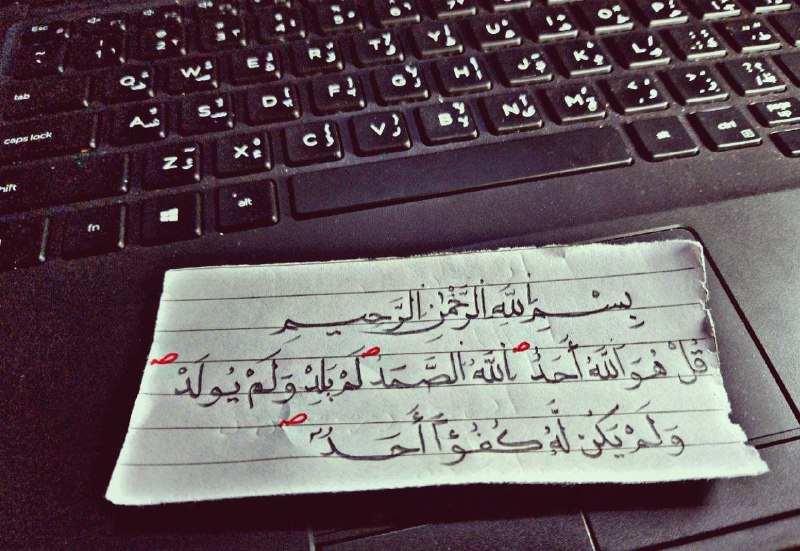 Esc
Q W E R T Y U I O P
tab
A S D F G H J K L
caps lock
Z X C V B N M
shift
fn alt alt ctrl page up
بِسْمِ ٱللَّهِ ٱلرَّحْمَٰنِ ٱلرَّحِيمِ
قُلْ هُوَ ٱللَّهُ أَحَدٌ ۖ ٱللَّهُ ٱلصَّمَدُ ۖ لَمْ يَلِدْ وَلَمْ يُولَدْ ۖ
وَلَمْ يَكُن لَّهُ كُفُؤًا أَحَدٌ ۖ